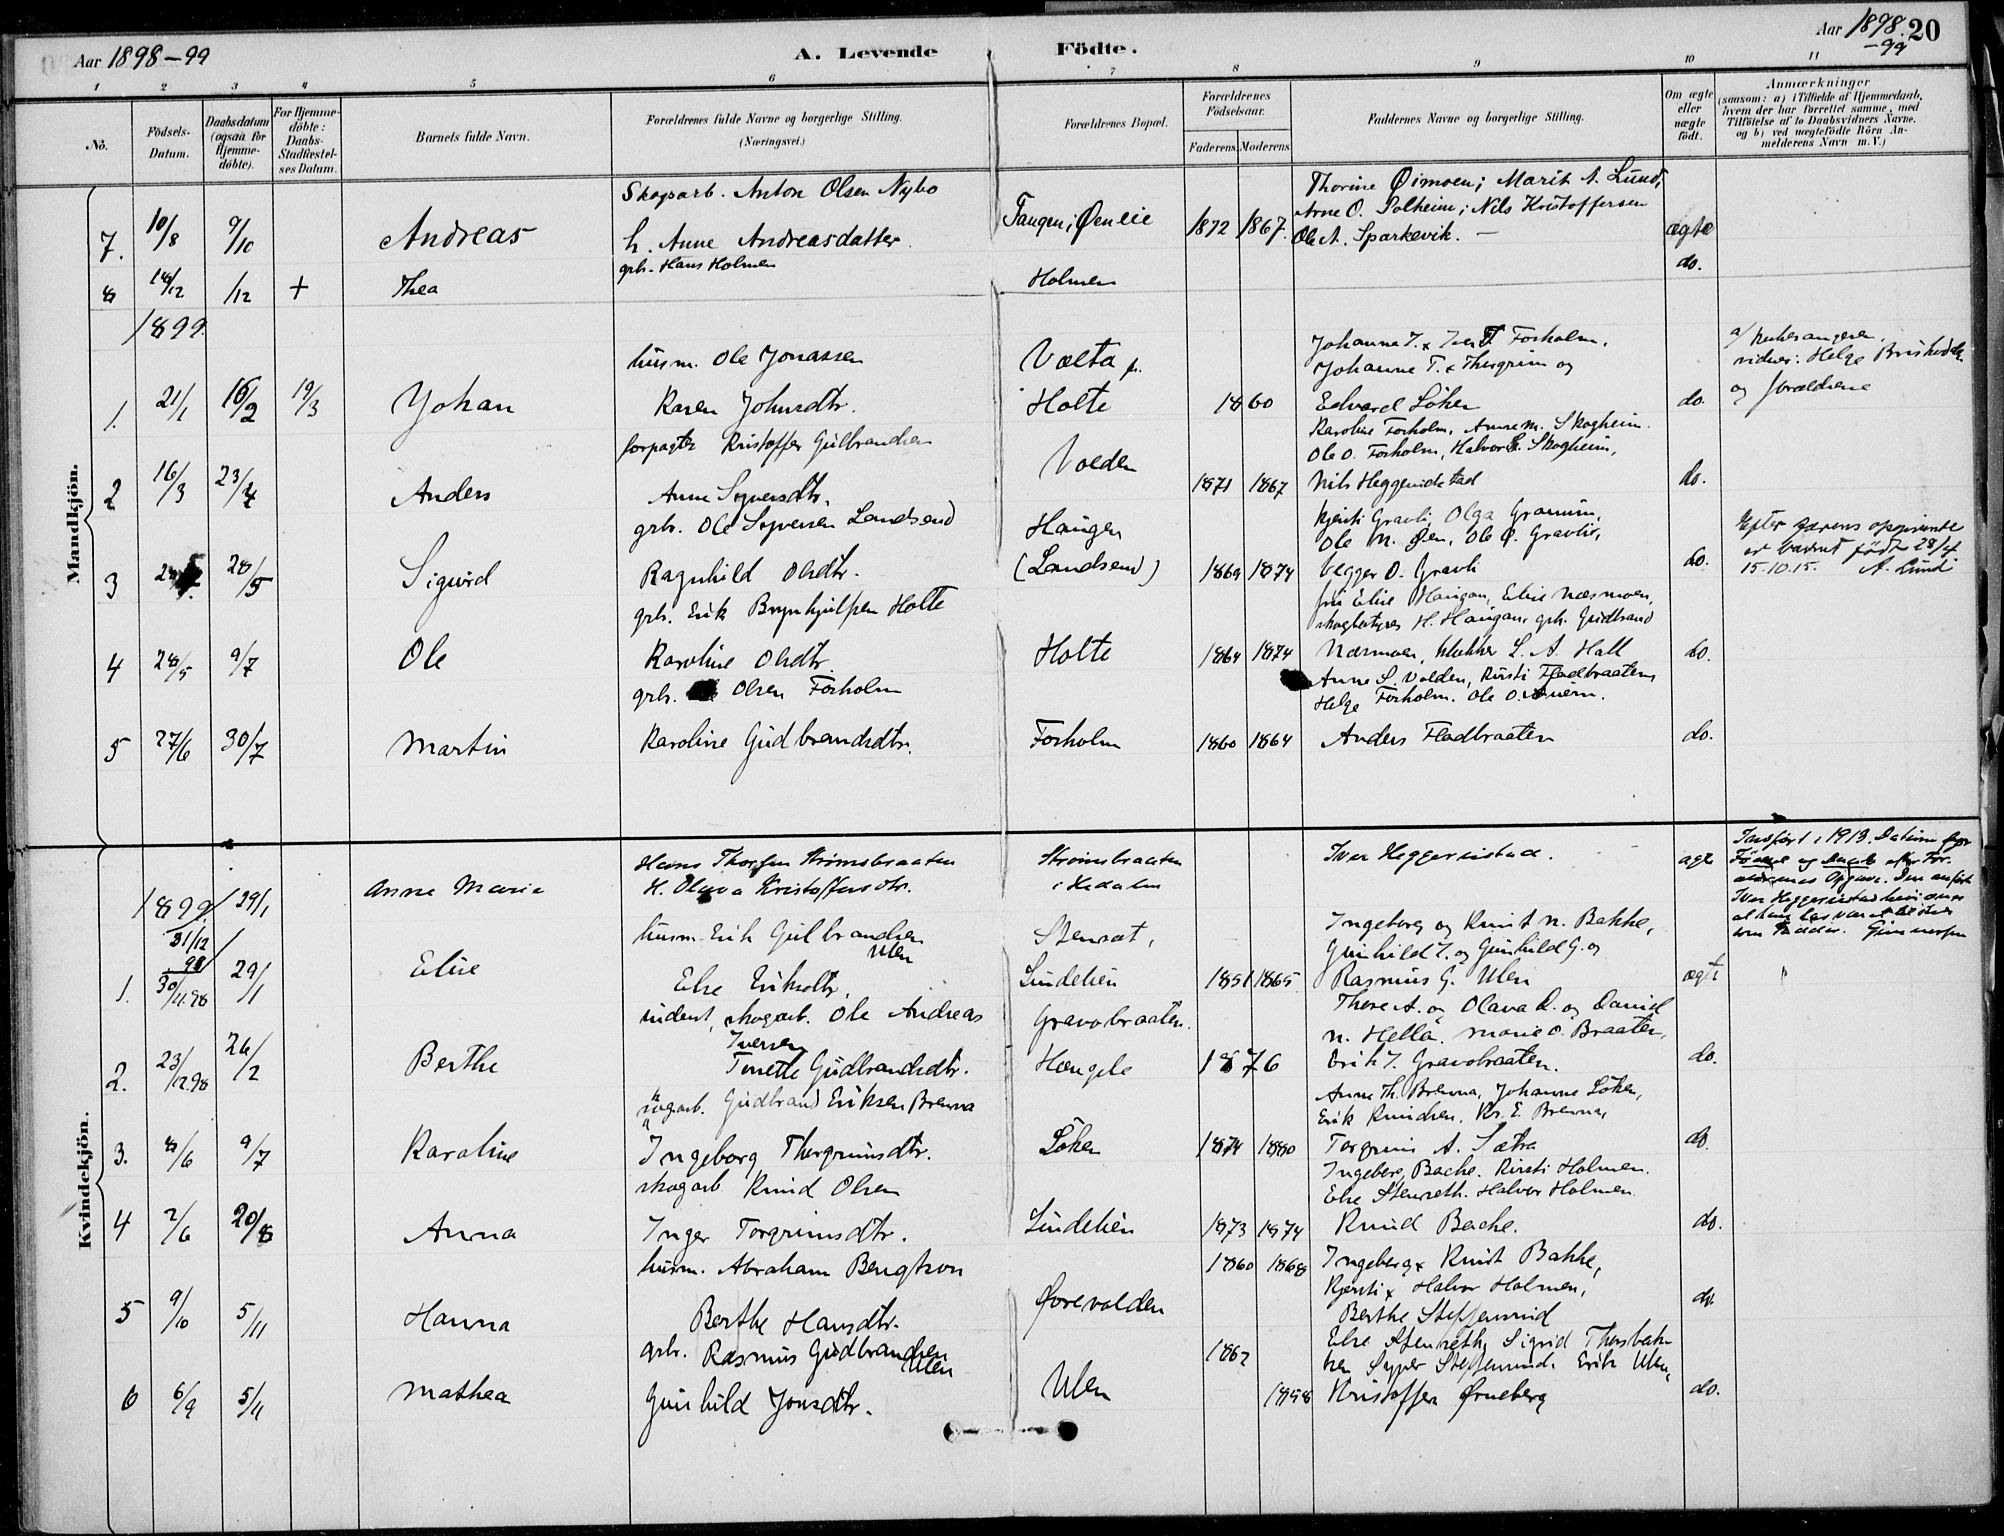 Aar 1898-99
A. Levende Födte.
Aar 1898-99
20
1 2 3 4 5 6 7 8 9 10 11
Nò.
Födsels-Datum.
Daabsdatum (ogsaa for Hjemme-döbte).
For Hjemme-döbte: Daabs-Stadfæstel-ses Datum.
Barnets fulde Navn.
Forældrenes fulde Navne og borgerlige Stilling.
(Næringsvei.)
Forældrenes Bopæl.
Forældrenes Födselsaar.
Faderens. Moderens.
Faddernes Navne og borgerlige Stilling.
Om ægte eller uægte födt.
Anmærkninger
(saasom: a) i Tilfælde af Hjemmedaab, hvem der har forrettet samme, med Tilföielse af to Daabsvidners Navne, og b) ved uægtefödte Börn An-melderens Navn m. V.)
Mandkjön.
Skogsarb. Anton Olsen Nybo
Thorine Øimoen; Marit A. Lund;
7. 10/8 9/10 Andreas h. Anne Andreasdatter. Tangen; Øen eie 1872 1867. Arne O. Solheim; Nils Kristoffersen
Ole A. Sparkevik. — ægte
grb. Hans Holmen
8 18/12 /12 + Thea Holmen do.
1899.
husm. Ole Jonassen
Johanne
Forholm.
vidner: Helge
1. 21/1 16/2 19/3 Johan Karen Johnsdtr. Holte 1860 Edvard Löken do. og forældrene
Johanne T. & Thorgrim og
forpagter Kristoffer Gulbrandsen
Karoline Forholm, Anne M. Skogheim.
Ole O. Forholm, Halvor Skogheim,
2 16/3 23/4 Anders Anne Syversdtr. Volden 1871 1867 Nils Heggenidstad do.
grb. Ole Syversen Landsend
Kjersti Gravli, Olga
Ole N. Øen, Ole O. Gravlie,
Efter
er barnet født 28/4
15.10.15. A. Lund
3 28/5 Sigurd Ragnhild Olsdtr. Haugen (Landsend) 1869 1874 O. Gravli do.
grb. Erik Brynhjulfsen Holte
fru Elise Haugan, Elise Næsmoen,
H. Haugan, grb. Gudbrand
4 28/5 9/7 Ole Karoline Olsdtr. Holte 1864 1874 Næsmoen, klokker L. A. Hall do.
grb. Olsen Forholm
Anne S. Volden, Kirsti Fladbraaten
Helge Forholm. Ole O.
5 27/6 30/7 Martin Karoline Gudbrandsdtr. Forholm 1860 1864 Anders Fladbraaten do.
Kvindekjön.
Hans Thorsen Strömsbraaten
Strömsbraaten
i Hedalen
Iver Heggenistad.
ægte
Indfört i 1913. Datum for
Födsel og Daab efter For-
ældrenes Opgave.
1899 29/1 Anne Marie H. Olava Kristoffersdtr.
som Fadder.
31/12
98
husm. Erik Gulbrandsen Ulen
Stensæt,
Ingeborg og Knut N. Bakke,
Gunhild I. og Gunhild G. og
1. 30/11.98 29/1 Elise Else Eriksdtr. Lindelien 1851 1865 Rasmus G. Ulen ægte
indent, skogarb. Ole Andreas Iversen
Gravobraaten.
There A. og Olava D. og Daniel
N. Hella. Marie O. Braaten,
2. 23/12.98 26/2 Berthe Tonette Gudbrandsdtr. Hængsle 1876 Erik I. Gravobraaten. do.
skogarb. Gudbrand Eriksen Brenna
Anne Th. Brenna, Johanne Löken,
Erik Knudsen. Kr. E. Brenna,
3. 8/6 9/7 Karoline Ingeborg Thorgrimsdtr. Löken 1874 1880 Torgrim A. Sætra do.
skogarb Knud Olsen
Ingeborg Bache. Kirsti Holmen.
Else Stensæth. Halvor Holmen.
4 2/6 20/8 Anna Inger Torgrimsdtr. Lindelien 1873 1874 Knud Bache. do.
husm. Abraham Bengtson
1860 1868 Ingeborg & Knut Bakke,
Kjersti & Halvor Holmen,
5 9/10 5/11 Hanna Berthe Hansdtr. Øvrevolden Berthe do.
grb. Rasmus Gudbrandsen Ulen
1862
Else Stensæth, Sigrid
Erik Ulen,
6 6/9 5/11 Mathea Gunhild Jonsdtr. Ulen 1858 Kristoffer Ørneberg do.